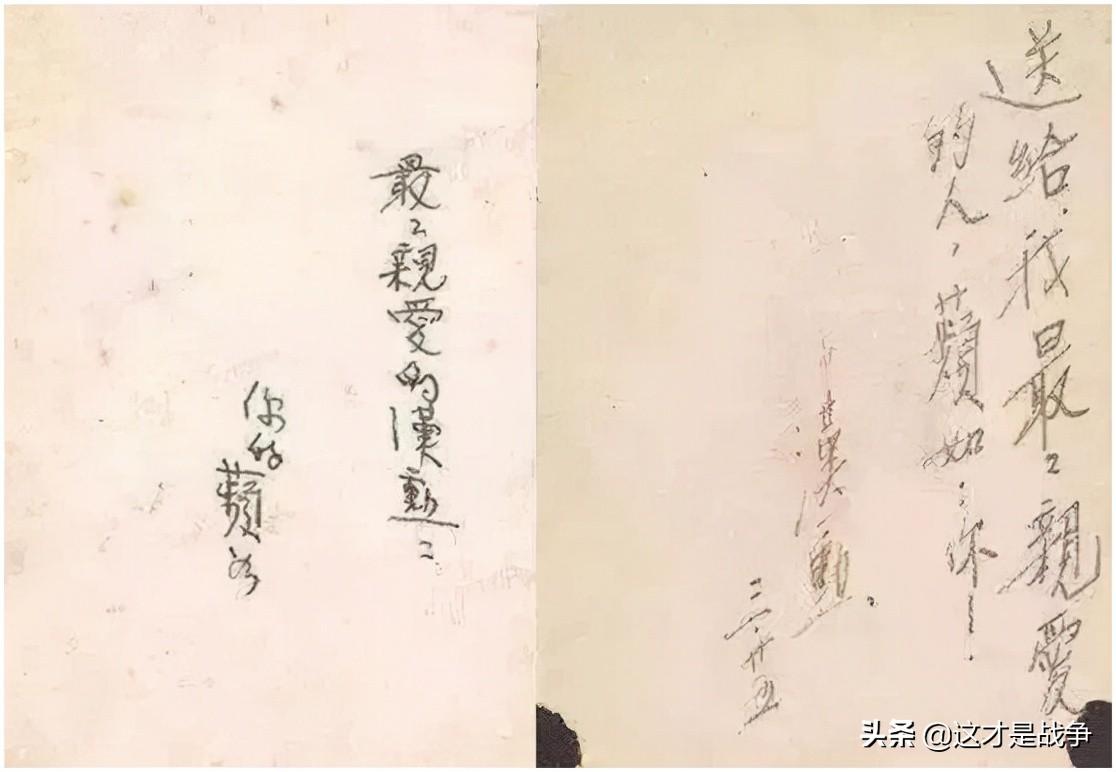 最〻親愛的漢勳：
你的蘋如
送給我最〻親愛
的人，蘋如：妹—
漢勳
三．廿五
头条 @这才是战争